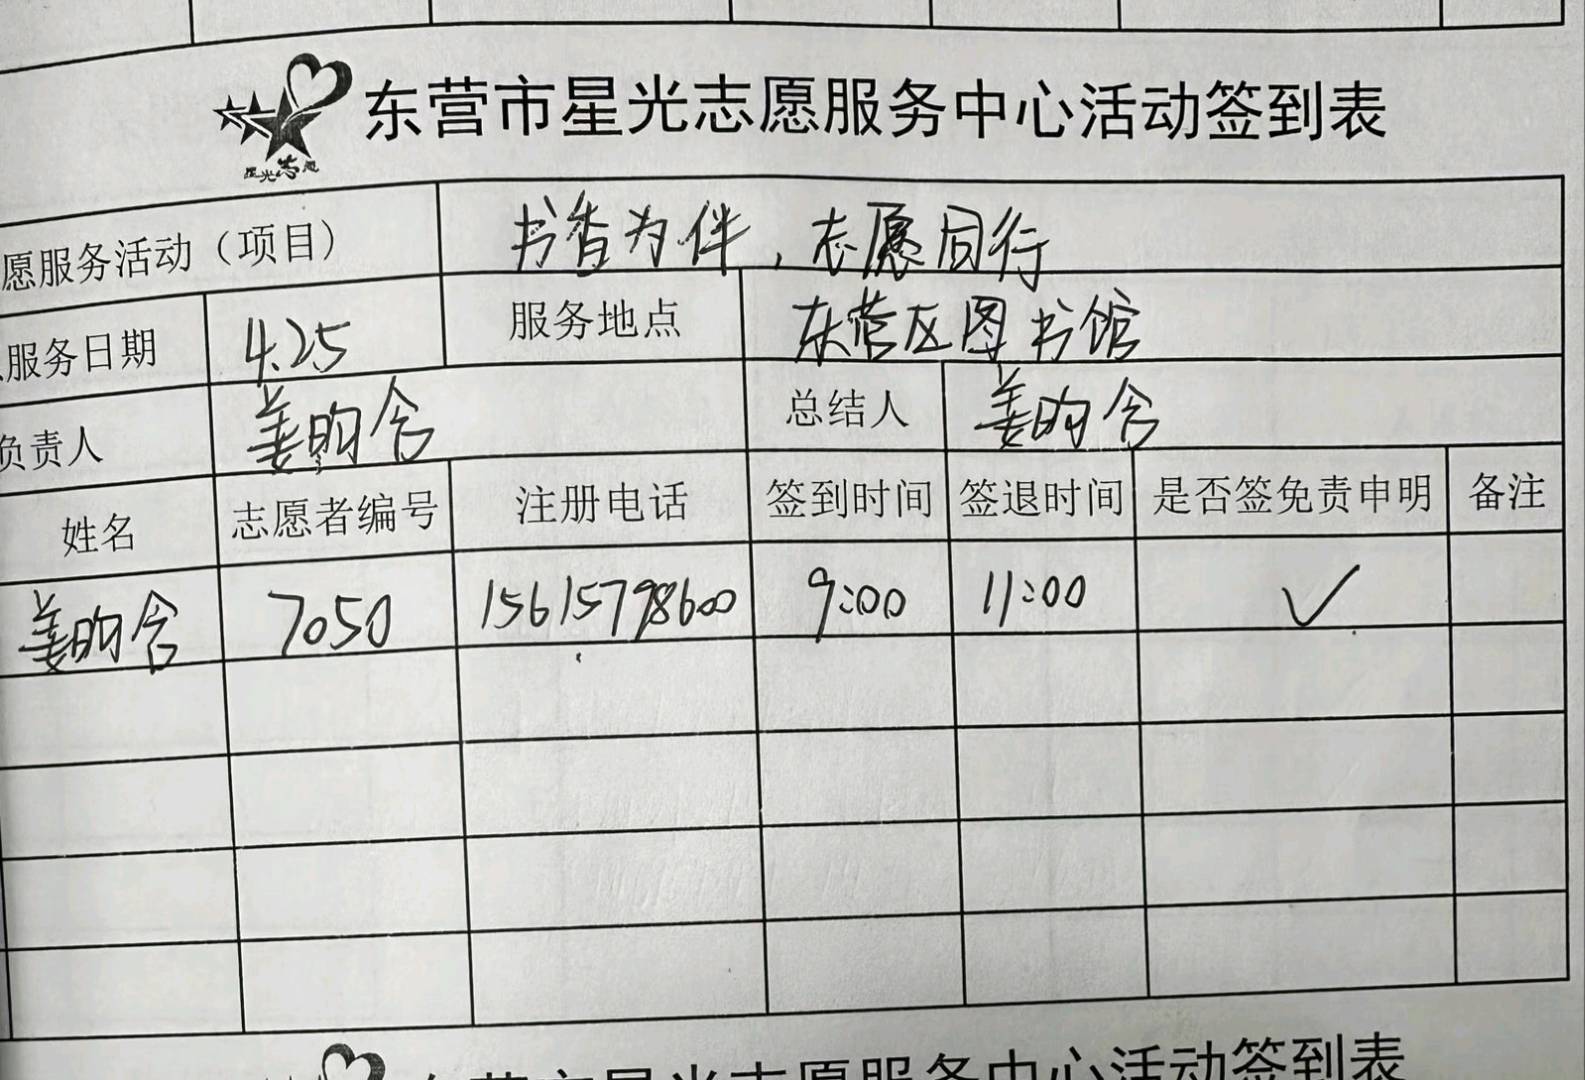 东营市星光志愿服务中心活动签到表
星光志愿
愿服务活动（项目） 书香为伴，志愿同行
服务日期 4.25 服务地点 东营区图书馆
负责人 姜昀含 总结人 姜昀含
姓名 志愿者编号 注册电话 签到时间 签退时间 是否签免责申明 备注
姜昀含 7050 15615798600 9:00 11:00 ✓
东营市星光志愿服务中心活动签到表